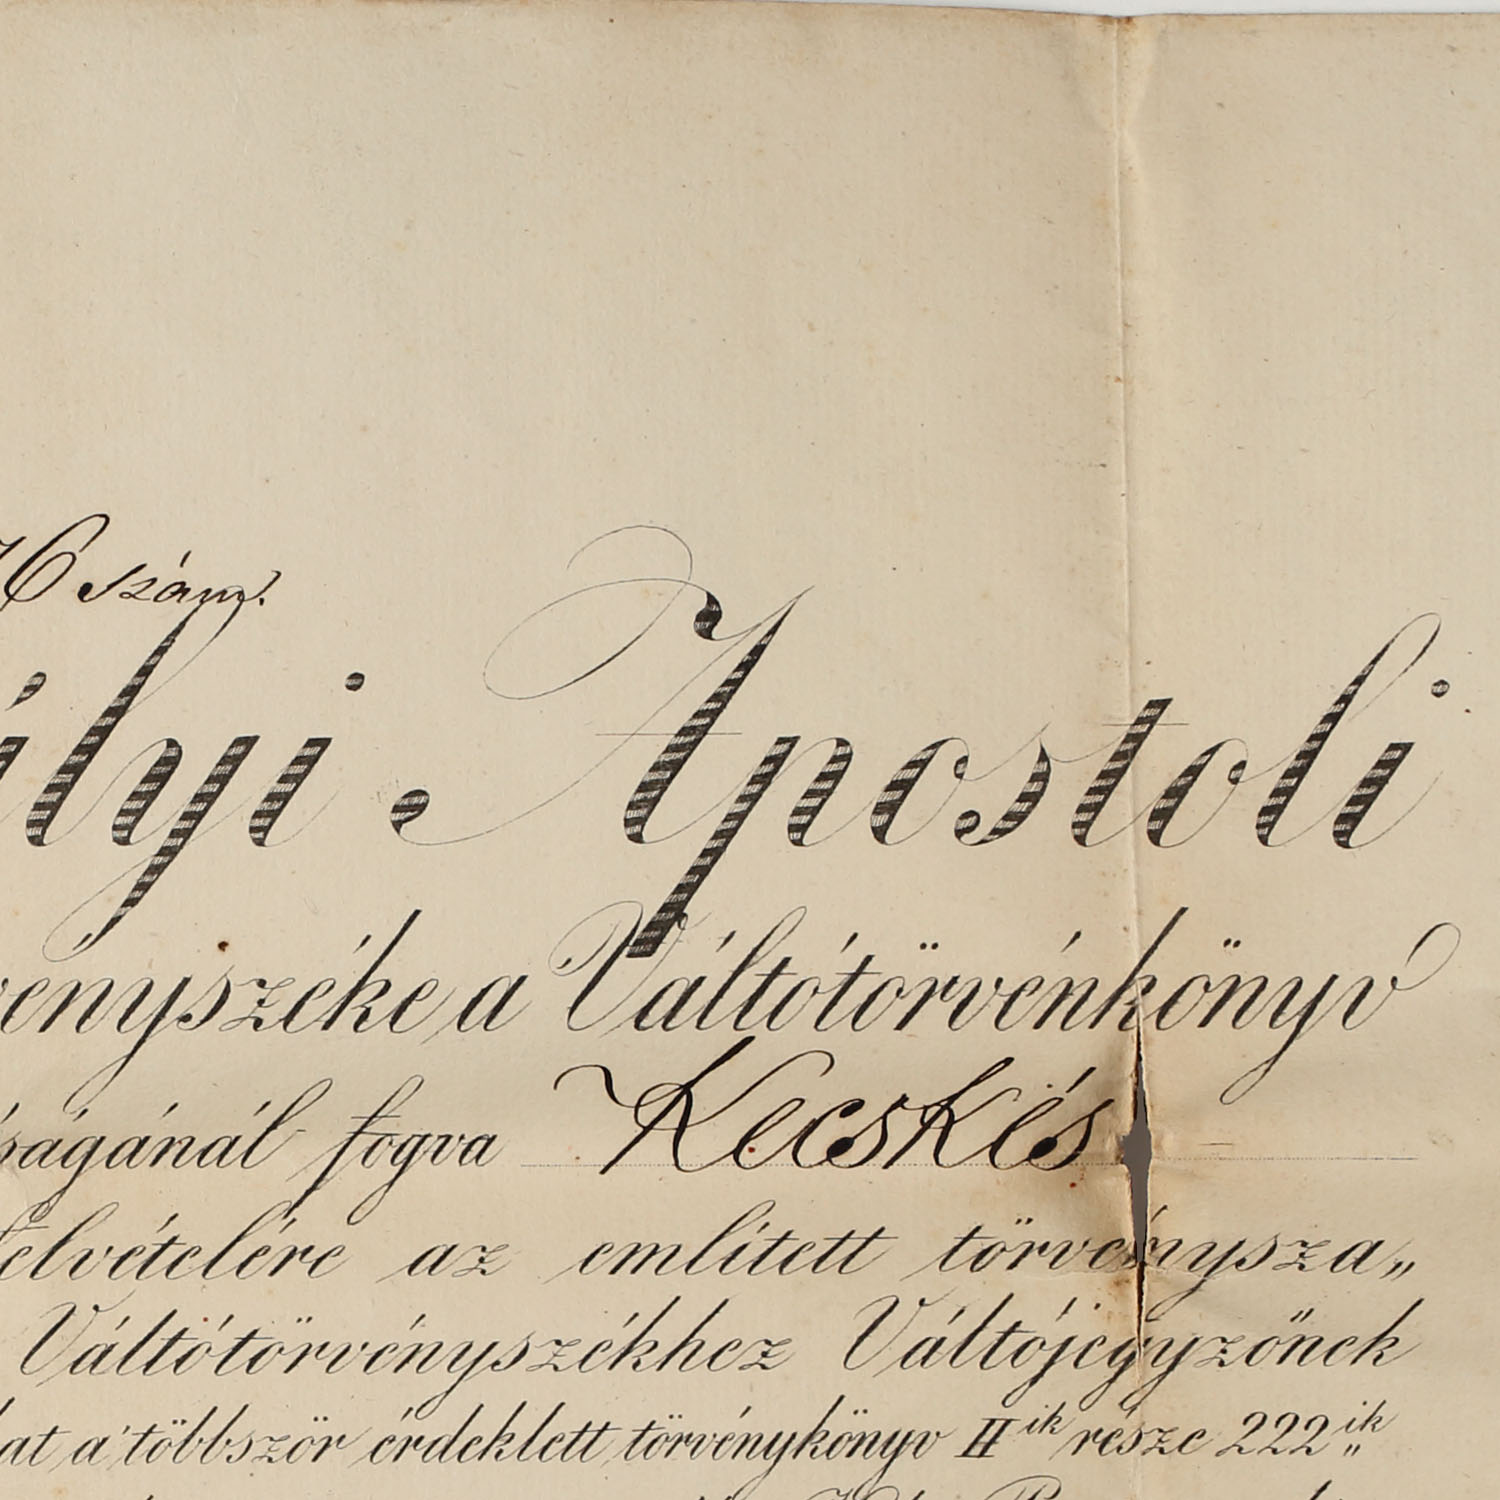 6 szám.
ályi Apostoli
vényszéke a Váltótörvénkönyv
ságánál fogva Kecskés
felvételére az emlitett törvénysza„
Váltótörvényszékhez Váltójegyzőnek
at a' többször érdeklett törvénykönyv II ik része 222 ik„